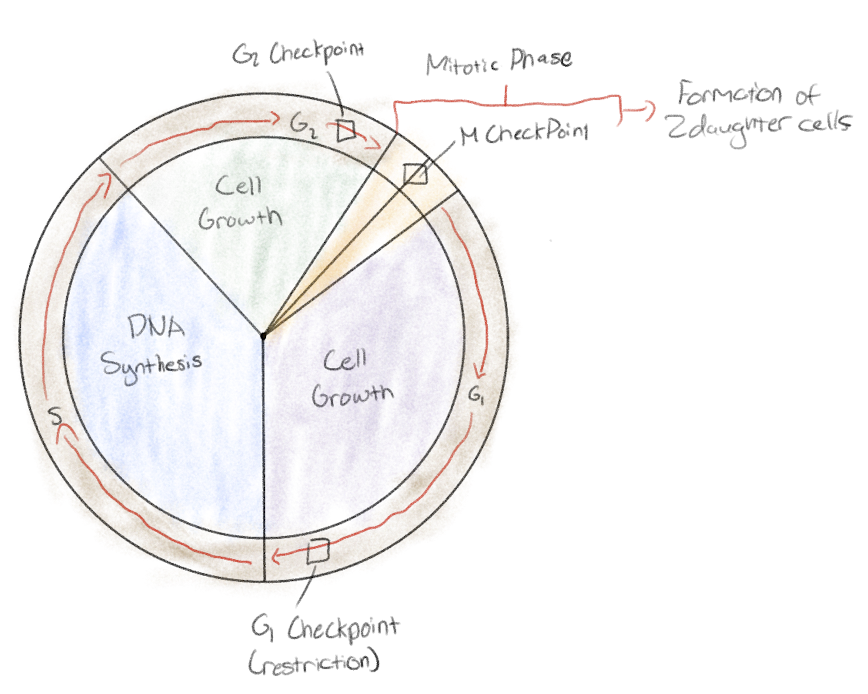 G2 Checkpoint
Mitotic Phase
Formation of
2 daughter cells
G2
M CheckPoint
Cell
Growth
DNA
Synthesis
Cell
Growth
G1
S
G1 Checkpoint
(restriction)